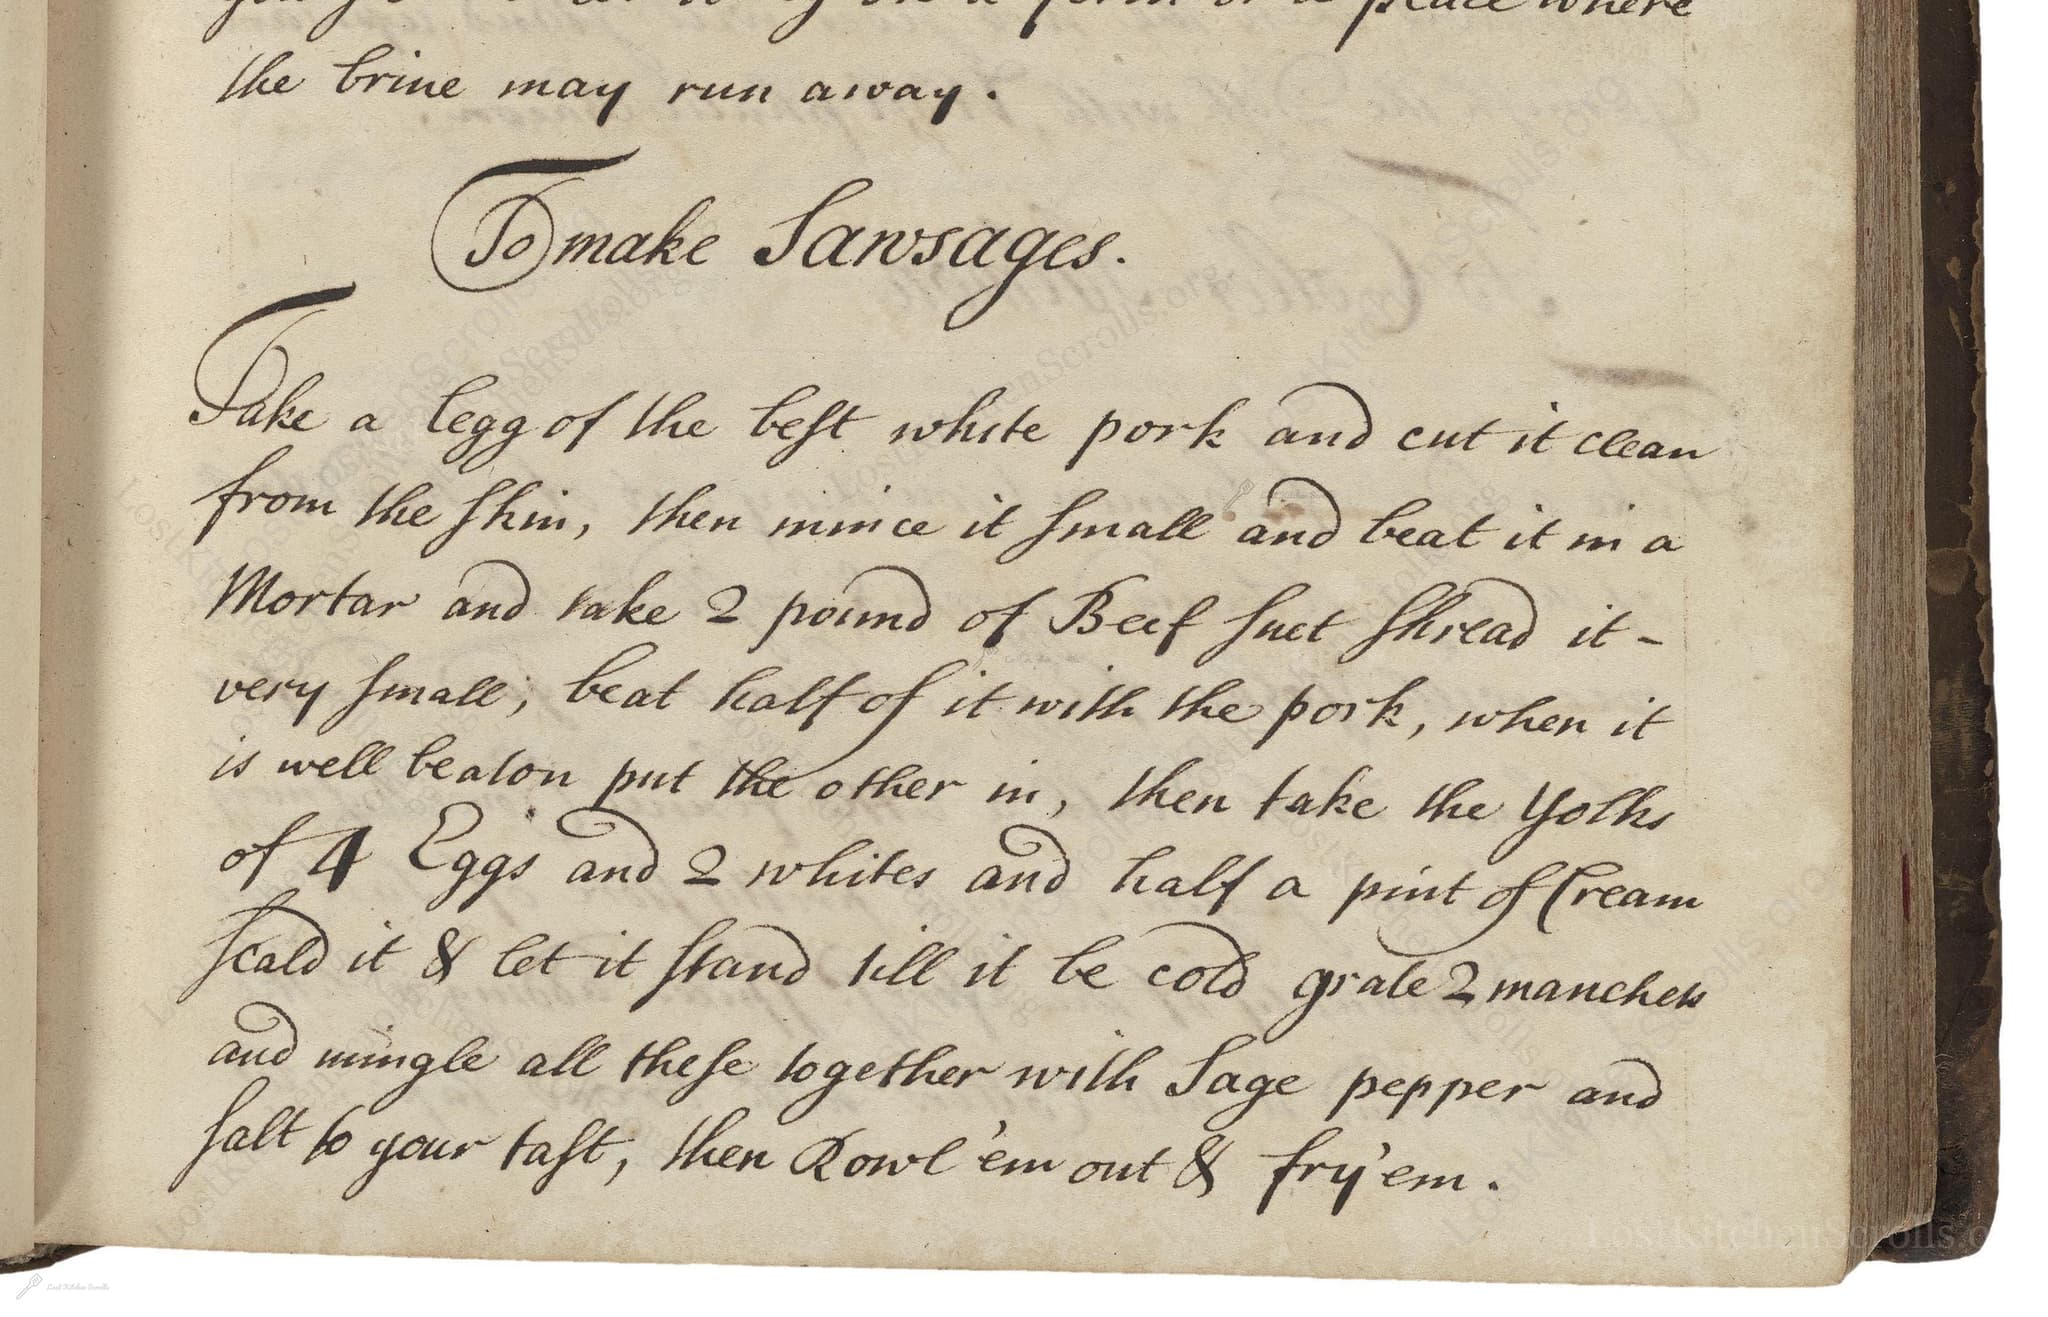 a place where
the brine may run away.
To make Sawsages.
Take a legg of the best white pork and cut it clean
from the skin, then mince it small and beat it in a
Mortar and take 2 pound of Beef suet shread it -
very small; beat half of it with the pork, when it
is well beaton put the other in, then take the Yolks
of 4 Eggs and 2 whites and half a pint of Cream
scald it & let it stand till it be cold grate 2 manchets
and mingle all these together with Sage pepper and
salt to your tast, then Rowl 'em out & fry 'em.
LostKitchenScrolls.o
Lost Kitchen Scrolls